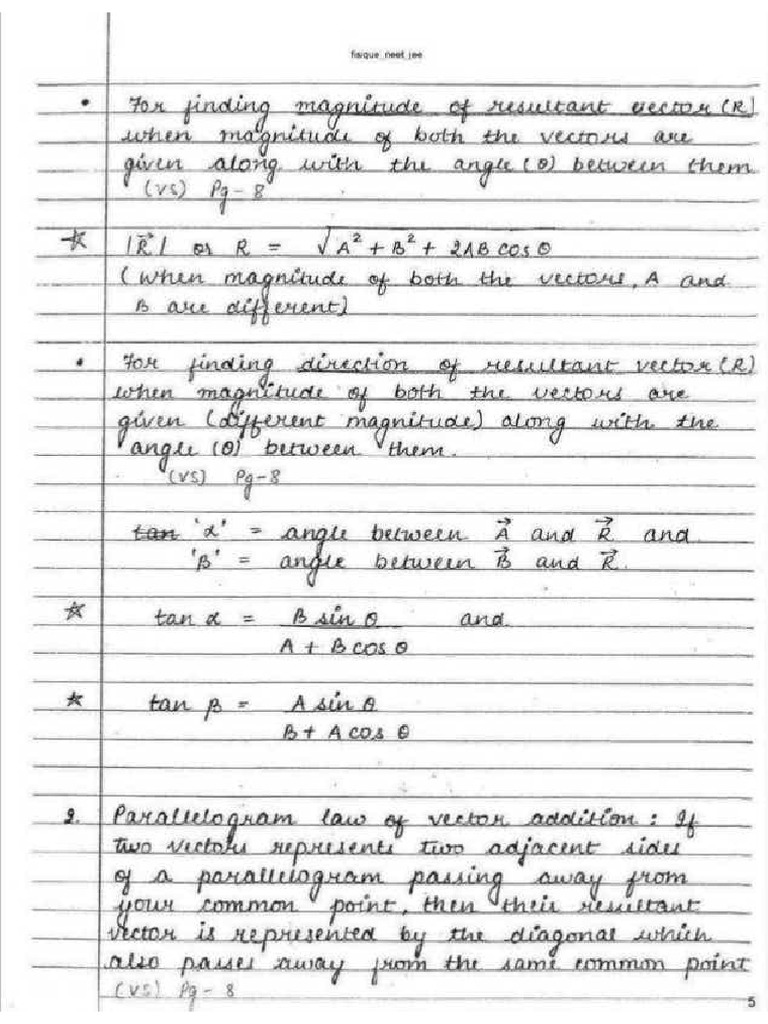 fisique_neet_jee
• For finding magnitude of resultant vector (R)
when magnitude of both the vectors are
given along with the angle (θ) between them
(VS) Pg - 8
☆ |R⃗| or R = √A² + B² + 2AB cos θ
(when magnitude of both the vectors, A and
B are different)
• For finding direction of resultant vector (R)
when magnitude of both the vectors are
given (different magnitude) along with the
angle (θ) between them.
(VS) Pg - 8
tan 'α' = angle between A⃗ and R⃗ and
'β' = angle between B⃗ and R⃗.
☆ tan α = B sin θ and
A + B cos θ
☆ tan β = A sin θ
B + A cos θ
2. Parallelogram law of vector addition : If
two vectors represents two adjacent sides
of a parallelogram passing away from
your common point, then their resultant
vector is represented by the diagonal which
also passes away from the same common point
(VS) Pg - 8
5